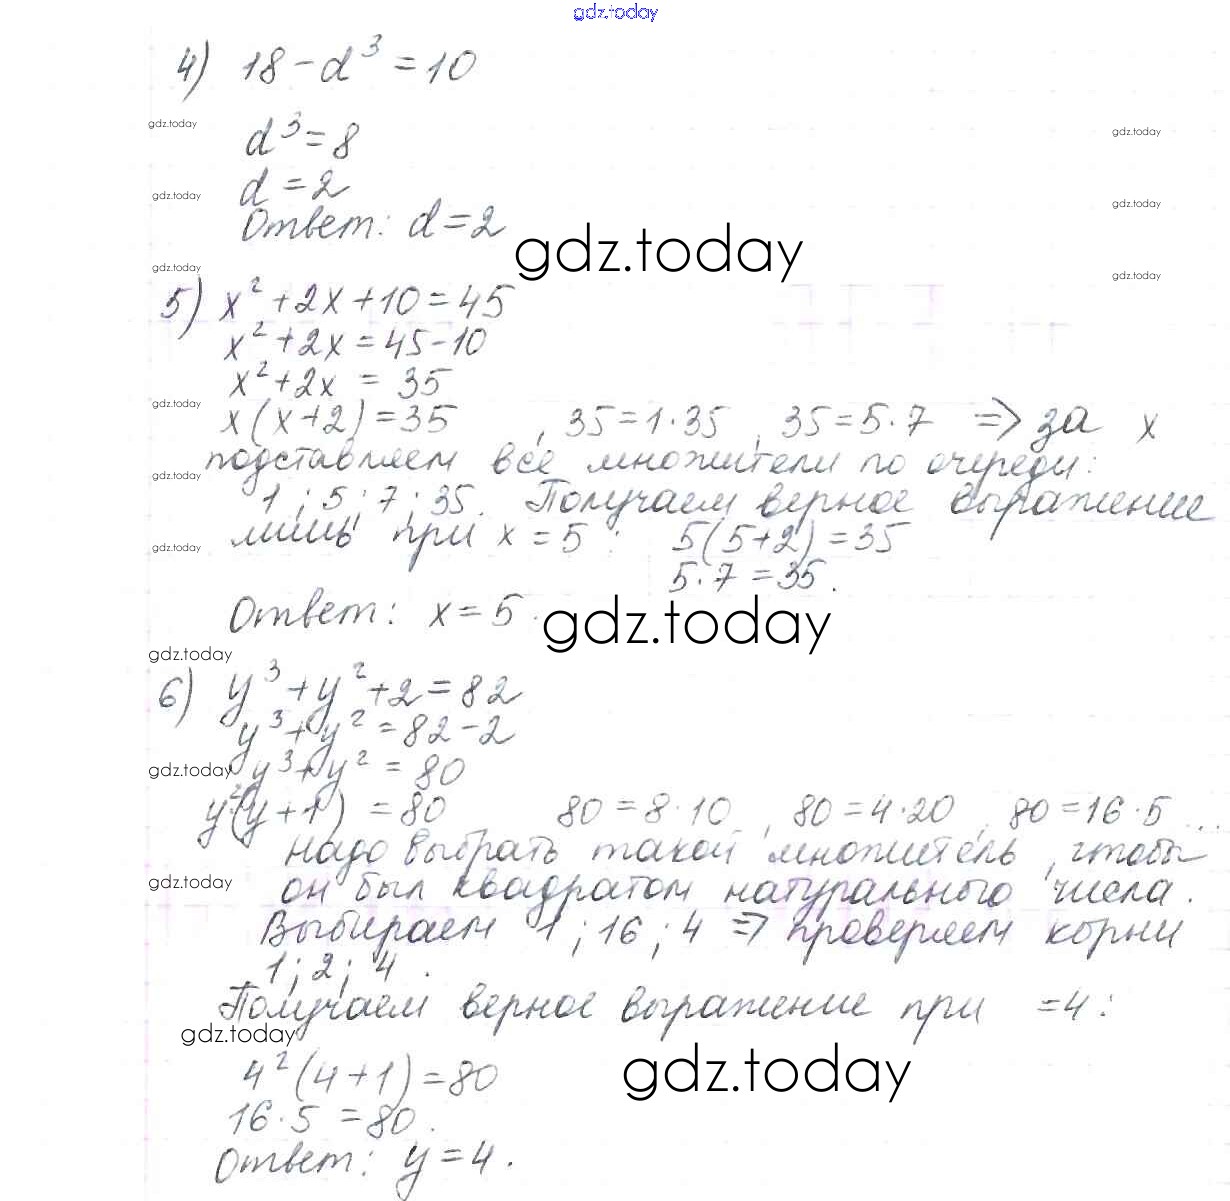 gdz.today
4) 18 - d³ = 10
gdz.today
d³ = 8
gdz.today
d = 2
gdz.today
gdz.today
Ответ: d = 2
gdz.today
gdz.today
gdz.today
5) x² + 2x + 10 = 45
x² + 2x = 45 - 10
x² + 2x = 35
gdz.today
x(x+2) = 35 , 35 = 1·35 , 35 = 5·7 => за x
подставляем все множители по очереди:
gdz.today
1 ; 5 ; 7 ; 35. Получаем верное выражение
лишь при x = 5 : 5(5+2) = 35
gdz.today
5·7 = 35.
Ответ: x = 5.
gdz.today
gdz.today
6) y³ + y² + 2 = 82
y³ + y² = 82 - 2
gdz.today
y³ + y² = 80
y²(y+1) = 80 80 = 8·10 , 80 = 4·20 , 80 = 16·5 ...
надо выбрать такой множитель, чтобы
gdz.today
он был квадратом натурального числа.
Выбираем 1 ; 16 ; 4 => проверяем корни
1 ; 2 ; 4 .
Получаем верное выражение при = 4 :
gdz.today
gdz.today
4²(4+1) = 80
16·5 = 80.
Ответ: y = 4.